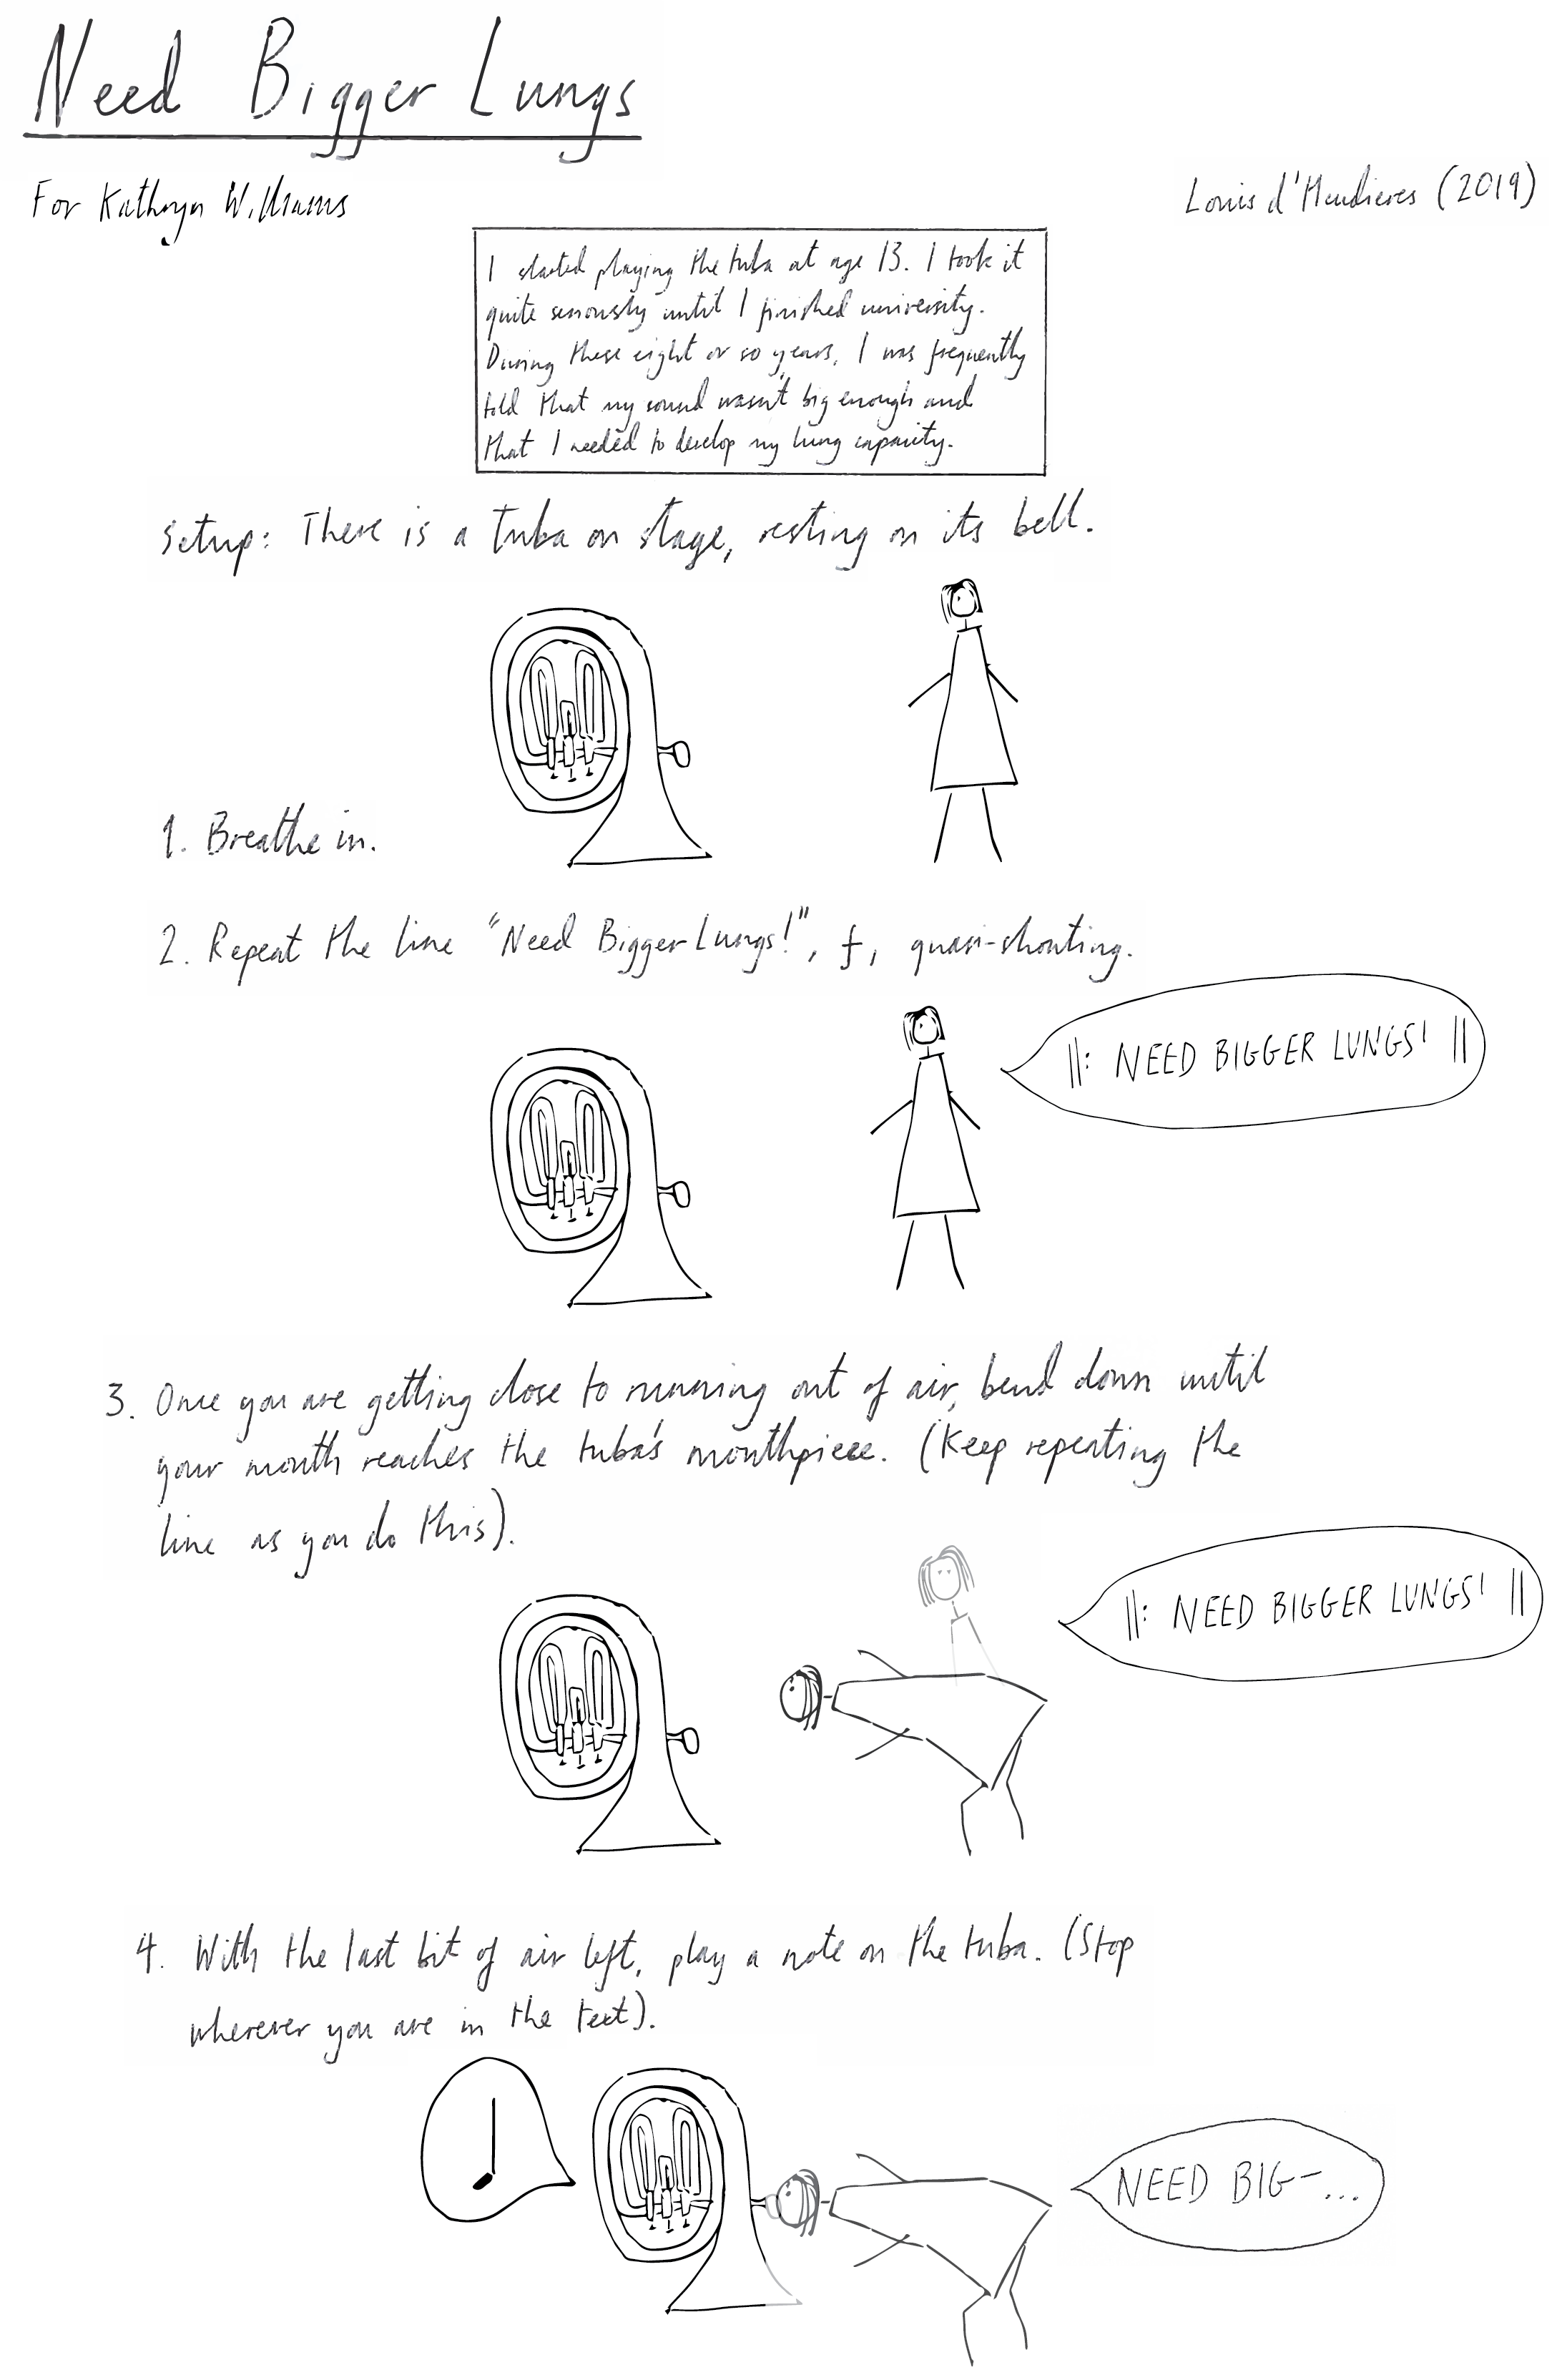 Need Bigger Lungs
For Kathryn Williams
Louis d'Heudieres (2019)
I started playing the tuba at age 13. I took it
quite seriously until I finished university.
During these eight or so years, I was frequently
told that my sound wasn't big enough and
that I needed to develop my lung capacity.
Setup: There is a tuba on stage, resting on its bell.
1. Breathe in.
2. Repeat the line "Need Bigger Lungs!", f, quasi-shouting.
||: NEED BIGGER LUNGS! ||
3. Once you are getting close to running out of air, bend down until
your mouth reaches the tuba's mouthpiece. (Keep repeating the
line as you do this).
||: NEED BIGGER LUNGS! ||
4. With the last bit of air left, play a note on the tuba. (Stop
wherever you are in the text).
NEED BIG-...